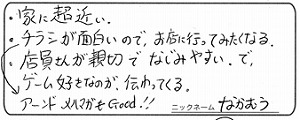 ・家に超近い.
・チラシが面白いので、お店に行ってみたくなる.
・店員さんが親切で なじみやすい. で、
ゲーム好きなのが、伝わってくる.
アーンド メルマガもGood.!!
ニックネーム なかむう